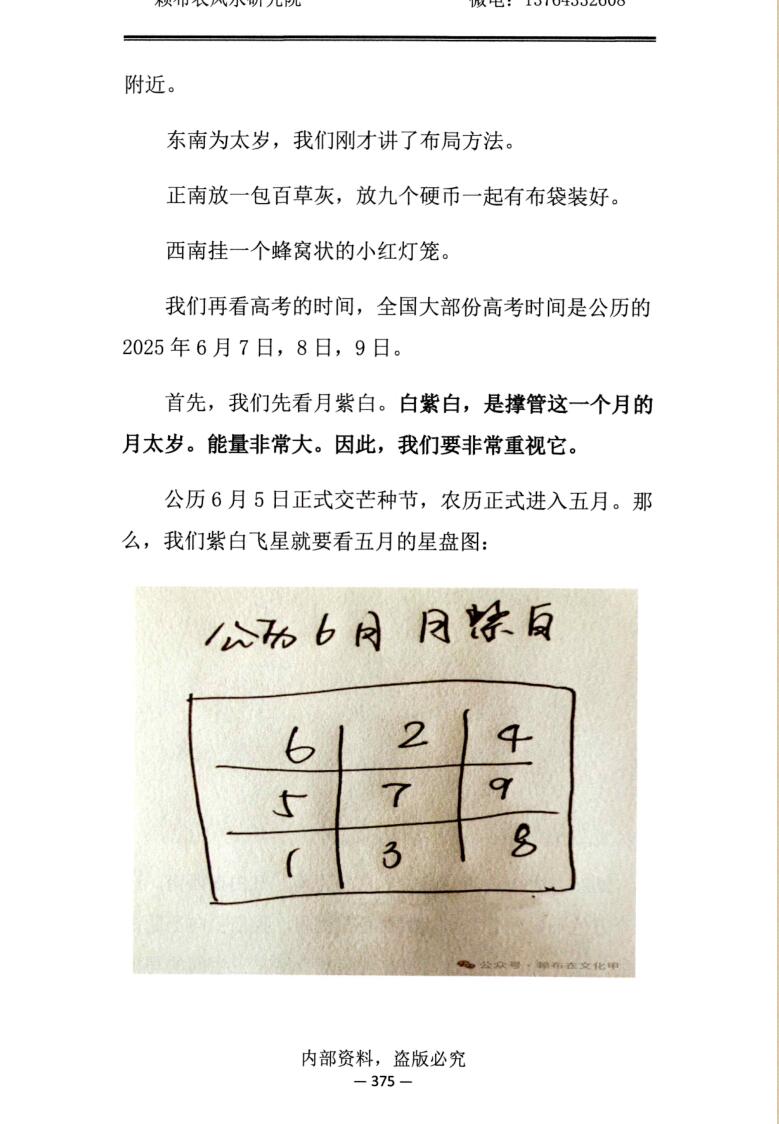 赖布衣风水研究院 微电：13764332608
附近。
东南为太岁，我们刚才讲了布局方法。
正南放一包百草灰，放九个硬币一起有布袋装好。
西南挂一个蜂窝状的小红灯笼。
我们再看高考的时间，全国大部份高考时间是公历的
2025 年 6 月 7 日，8 日，9 日。
首先，我们先看月紫白。白紫白，是撑管这一个月的
月太岁。能量非常大。因此，我们要非常重视它。
公历 6 月 5 日正式交芒种节，农历正式进入五月。那
么，我们紫白飞星就要看五月的星盘图：
公历 6 月 月紫白
6 2 4
5 7 9
1 3 8
公众号·赖布衣文化甲
内部资料，盗版必究
— 375 —